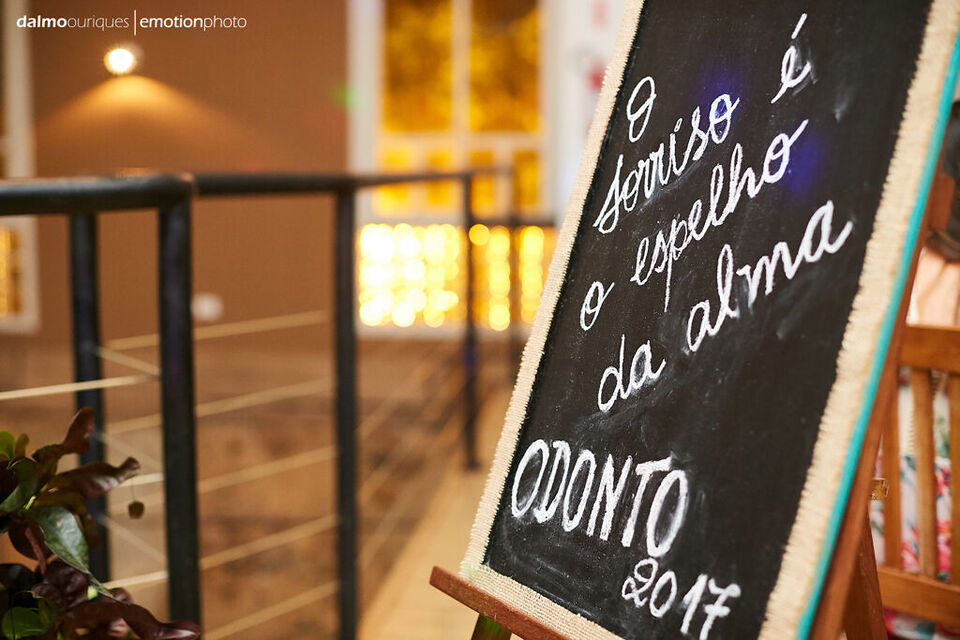 dalmoouriques|emotionphoto
O
sorriso é
o espelho
da alma
ODONTO
2017